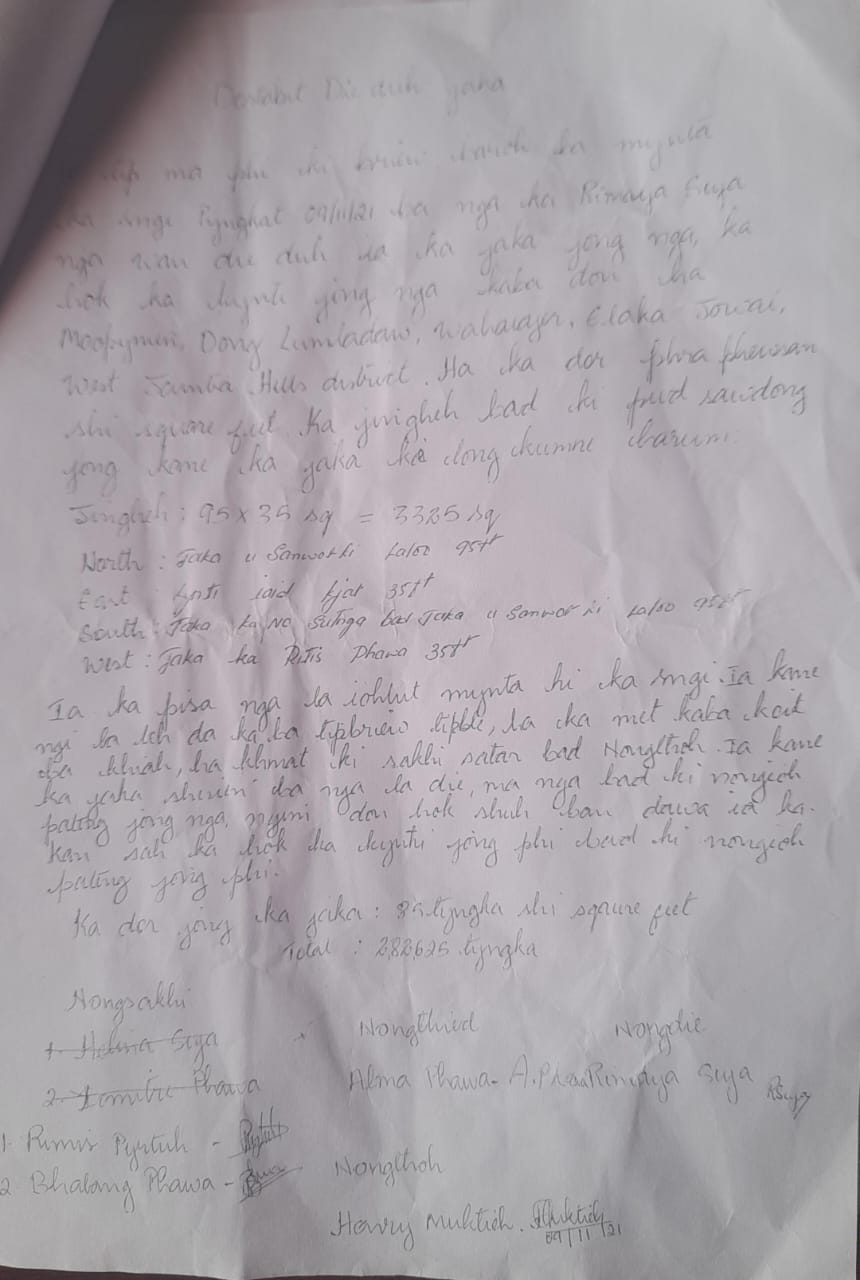 Dostabit Die duh jaka
ma phi ki briew baroh ba mynta
ka sngi Pyngkat 09/11/21 ba nga ka Rimaya Suja
nga wan die duh ia ka jaka jong nga, ka
hok ka kynti jong nga kaba don ha
Mookymen, Dong Lumladaw, Wahiajer, Elaka Jowai,
West Jaintia Hills district. Ha ka dor phra phewsan
shi square feet. Ka jingheh bad ki pud sawdong
jong kane ka jaka ka long kumne harum:
Jingheh : 95 x 35 sq = 3325 sq
North : Jaka u Sanworki Laloo 95ft
East : Synti iaid kjat 35ft
South : Jaka ka No Sutnga bad Jaka u Sanworki Laloo 95ft
West : Jaka ka Ritis Phawa 35ft
Ia ka pisa nga la iohlut mynta hi ka sngi. Ia kane
ngi la leh da ka ba tipbriew tipblei, ha ka met kaba koit
ba khiah, ha khmat ki sakhi satar bad Nongthoh. Ia kane
ka jaka shuwin ba nga la die, ma nga bad ki nongioh
pateng jong nga, ngim don hok shuh ban dawa ia ka.
Kan sah ka hok ka kynti jong phi bad ki nongioh
pateng jong phi.
Ka dor jong ka jaka : 85 tyngka shi sqaure feet
Total : 282625 tyngka
Nongsakhi
Nongthied Nongdie
1. Helina Suja
2. Phawa Alma Phawa - Rimaya Suja RSuja
1. Rimis Pyrtuh -
2 Bhalang Phawa - Nongthoh
Henry Muktieh. HMuktieh
09/11/21